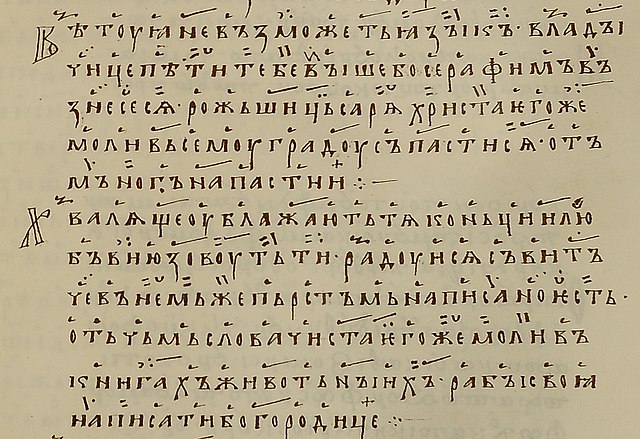 ВѢТОУꙖНЕВЪЗМОЖЕТЬꙖЗЪІКЪ·ВЛАДЪІ
ЧИЦЕПѢТИТЕБЕВЪІШЕБОСЕРАФИМЪВЪ
ЗНЕСЕСѦ·РОЖЬШИЦЬСАРѦХРИСТАѤГОЖЕ
МОЛИВЬСЕМОУГРАДОУСЪПАСТИСѦ·ОТЪ
МЪНОГЪНАПАСТИИ
ХВАЛѦЩЕОУБЛАЖАЮТЬТѦКОНЬЦИИЛЮ
БЪВИЮЗОВОУТЬТИ·РАДОУИСѦСЪВИТЪ
ЧЕВЪНЕМЬЖЕПЬРСТЪМЬНАПИСАНОѤСТЬ·
ОТЬЧЬМЬСЛОВАЧИСТАѤГОЖЕМОЛИВЪ
КНИГАХЪЖИВОТЬНЪІИХЪ·РАБЪІСВОꙖ
НАПИСАТИБОГОРОДИЦЕ